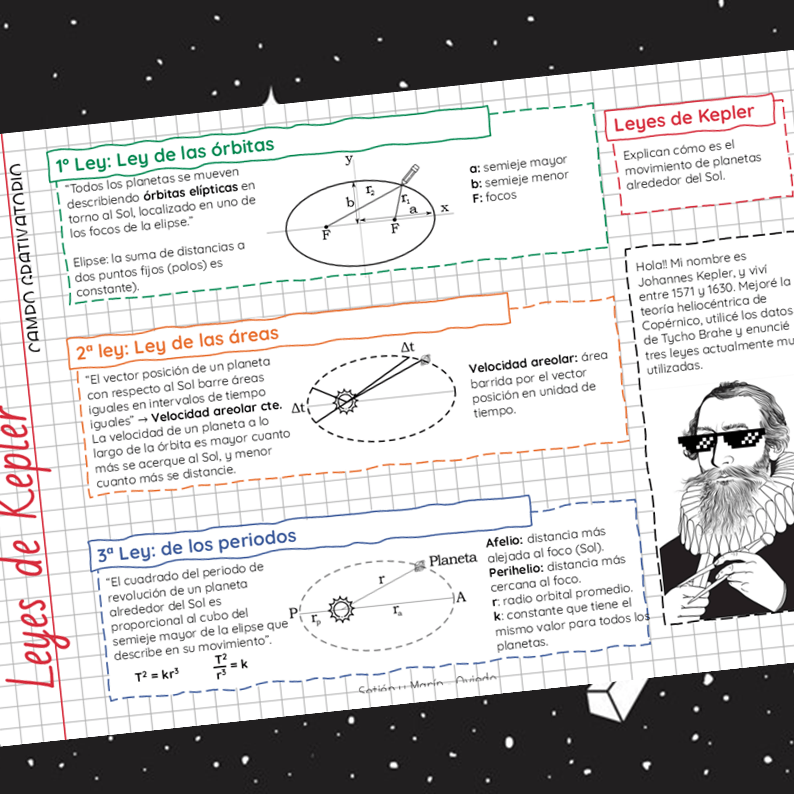 Leyes de Kepler
CAMPO GRAVITATORIO
1º Ley: Ley de las órbitas
"Todos los planetas se mueven
describiendo órbitas elípticas en
torno al Sol, localizado en uno de
los focos de la elipse."
Elipse: la suma de distancias a
dos puntos fijos (polos) es
constante).
y
r₂
b
r₁
a
x
F
F
a: semieje mayor
b: semieje menor
F: focos
Leyes de Kepler
Explican cómo es el
movimiento de planetas
alrededor del Sol.
2ª ley: Ley de las áreas
"El vector posición de un planeta
con respecto al Sol barre áreas
iguales en intervalos de tiempo
iguales" → Velocidad areolar cte.
La velocidad de un planeta a lo
largo de la órbita es mayor cuanto
más se acerque al Sol, y menor
cuanto más se distancie.
Δt
Δt
Velocidad areolar: área
barrida por el vector
posición en unidad de
tiempo.
Hola!! Mi nombre es
Johannes Kepler, y viví
entre 1571 y 1630. Mejoré la
teoría heliocéntrica de
Copérnico, utilicé los datos
de Tycho Brahe y enuncié
tres leyes actualmente mu
utilizadas.
3ª Ley: de los periodos
"El cuadrado del periodo de
revolución de un planeta
alrededor del Sol es
proporcional al cubo del
semieje mayor de la elipse que
describe en su movimiento".
T² = kr³
T²/r³ = k
Planeta
r
P
rₚ
rₐ
A
Afelio: distancia más
alejada al foco (Sol).
Perihelio: distancia más
cercana al foco.
r: radio orbital promedio.
k: constante que tiene el
mismo valor para todos los
planetas.